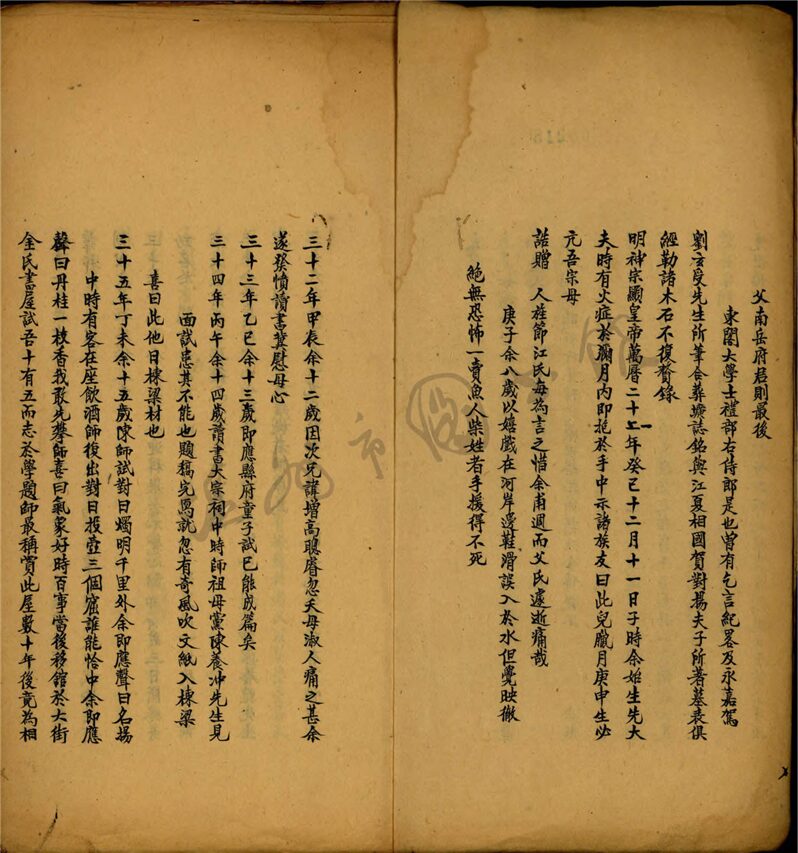 父南岳府君則最後
東閣大學士禮部右侍郎是也曾有乞言紀畧及永嘉駕
劉玄受先生所筆余葬壙誌銘與江夏相國賀對揚夫子所著墓表俱
經勒諸木石不復贅錄
明神宗顯皇帝萬曆二十一年癸巳十二月十一日子時余始生先大
夫時有火症於彌月內即抱於手中示諸族友曰此兒臘月庚申生必
亢吾宗母
誥贈 人旌節江氏每為言之惜余甫週而父氏遽逝痛哉
庚子余八歲以嬉戲在河岸邊鞋滑誤入於水但覺映徹
絕無恐怖一賣魚人柴姓者手援得不死
三十二年甲辰余十二歲因次兄諱增高聰睿忽夭母淑人痛之甚余
遂發憤讀書冀慰母心
三十三年乙巳余十三歲即應縣府童子試已能成篇矣
三十四年丙午余十四歲讀書大宗祠中時師祖母黨陳養冲先生見
面試恚其不能也題稿完寫就忽有奇風吹文紙入棟梁
喜曰此他日棟梁材也
三十五年丁未余十五歲陳師試對曰燭明千里外余即應聲曰名揚
中時有客在座飲酒師復出對曰投壺三個窟誰能恰中余即應
聲曰丹桂一枝香我敢先攀師喜曰氣象好時百事當後移館於大街
金氏書屋試吾十有五而志於學題師最稱賞此屋數十年後竟為相